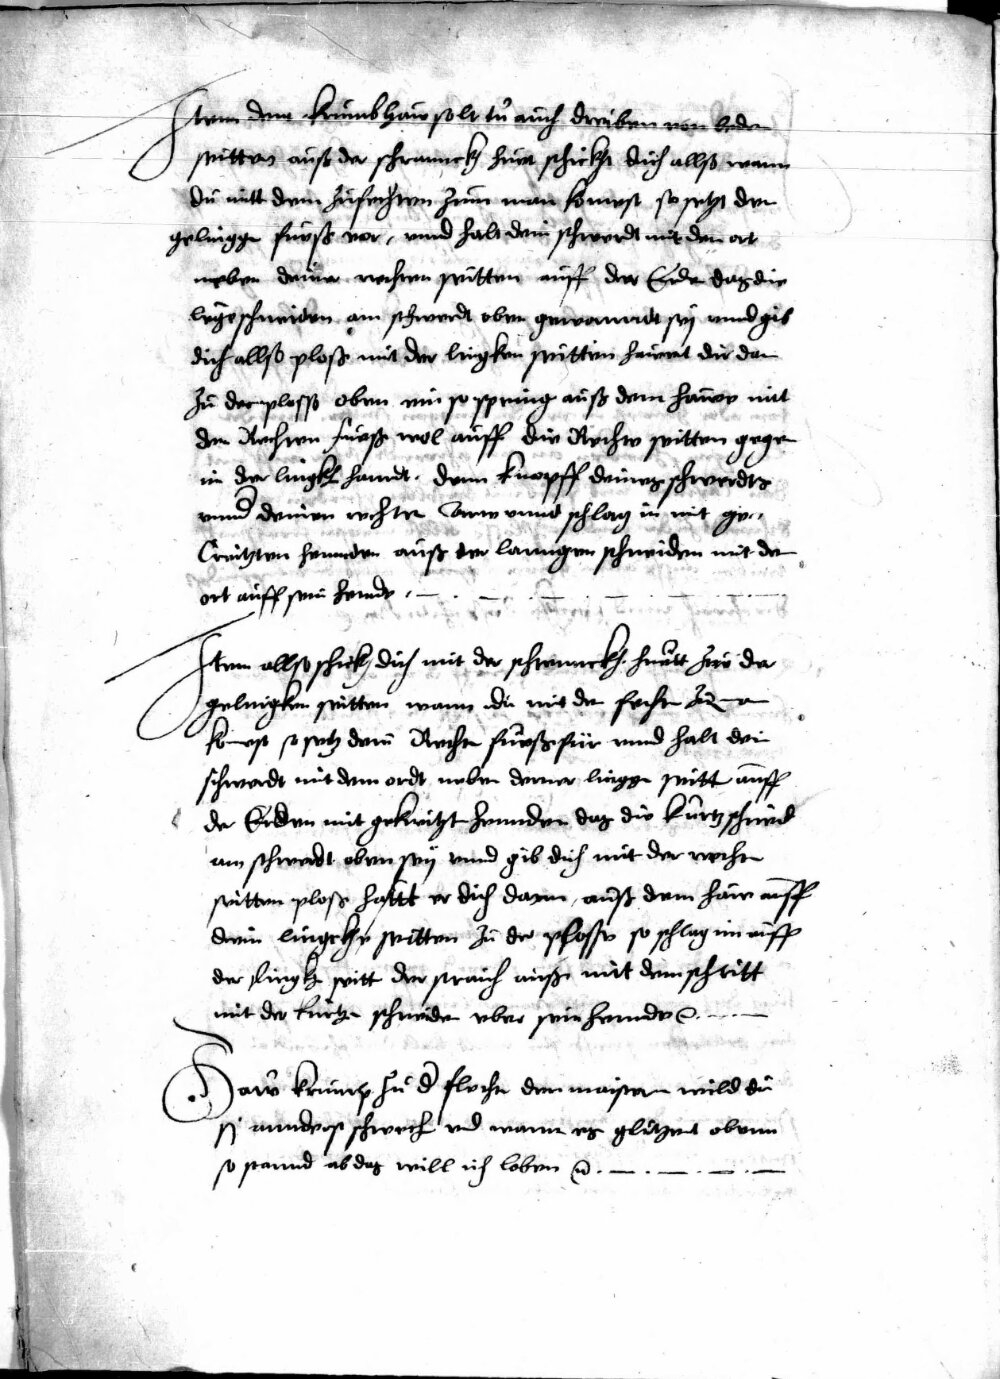 Item den krumbhaw solt tu auch dreiben von beden
seitten auß der schranck huet schickh dich allso wann
du mitt dem zufechten zum man komest so setz den
gelingge fueß vor, vnnd halt dein schwerdt mit dem ort
neben deiner rechten seitten auff der Erde das die
lenge schneiden am schwerdt oben gewanndt sey vnnd gib
dich allso ploß mit der lingken seitten hauett dir dan
zu der plosß oben ein so spring auß dem hawe mit
den Rechten fueß wol auff die Rechte seitten gege
im der lingkh handt. denn knopff deines schwerdts
vnnd deinen rechten Arm vnnd schlag in mit ge,,
Creitzten hennden auß der lanngen schneiden mit de
ort auff sein hende .
Item allso schickh dich mit der schranckh huett zue der
gelingken seitten wann du mit de fechte zu
komest so setz dein Rechte fueß für vnnd halt dein
schwerdt mit dem ordt neben deiner lingge seitt auff
der Erden mit gekreitzt hennden das die kurtz schneid
am schwerdt oben sey vnnd gib dich mit der rechte
seitten ploß hattt er dich dann, auß dem haw auff
dein lingckhe seitten zu der plosse so schlag im auff
der lingk seitt der straich auß mit dem schritt
mit der kurtze schneide vber sein hennde
Haw krump zu d fleche den maistern wild du
sy annderst schwech vnd wann es glitzent obenn
so stannd ab das will ich loben